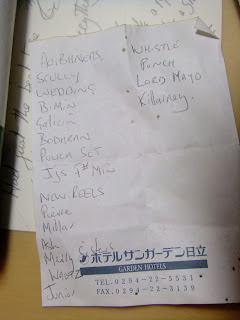 SCULLY
WEDDING
B.MIN
Galicia
BODHRAN
POLKA SET
Jgs 1st MIN
NEW REELS
Pierre
Millar
Ash
Molly
WALTZ
Junior
WHISTLE
PUNCH
LORD MAYO
Killarney.
ホテルサンガーデン日立
GARDEN HOTELS
TEL.0294-22-3531
FAX.0294-22-3139